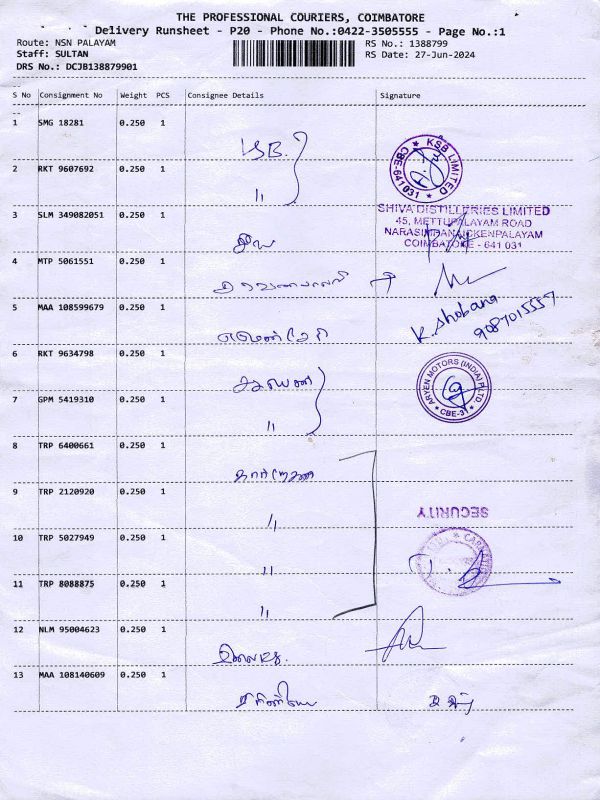 THE PROFESSIONAL COURIERS, COIMBATORE
Delivery Runsheet - P20 - Phone No.:0422-3505555 - Page No.:1
Route: NSN PALAYAM
Staff: SULTAN
DRS No.: DCJB138879901
RS No.: 1388799
RS Date: 27-Jun-2024
S No Consignment No Weight PCS Consignee Details Signature
1 SMG 18281 0.250 1 KSB.
KSB LIMITED
CBE-641 031
2 RKT 9607692 0.250 1 "
3 SLM 349082051 0.250 1
SHIVA DISTILLERIES LIMITED
45, METTUPALAYAM ROAD
NARASIMPANAICKENPALAYAM
COIMBATORE - 641 031
4 MTP 5061551 0.250 1
5 MAA 108599679 0.250 1
K. Shobana
9087015557
6 RKT 9634798 0.250 1
ARYEN MOTORS (INDIA) P LTD.
CBE-31
7 GPM 5419310 0.250 1 "
8 TRP 6400661 0.250 1
9 TRP 2120920 0.250 1 "
SECURITY
10 TRP 5027949 0.250 1 "
11 TRP 8088875 0.250 1 "
12 NLM 95004623 0.250 1
13 MAA 108140609 0.250 1